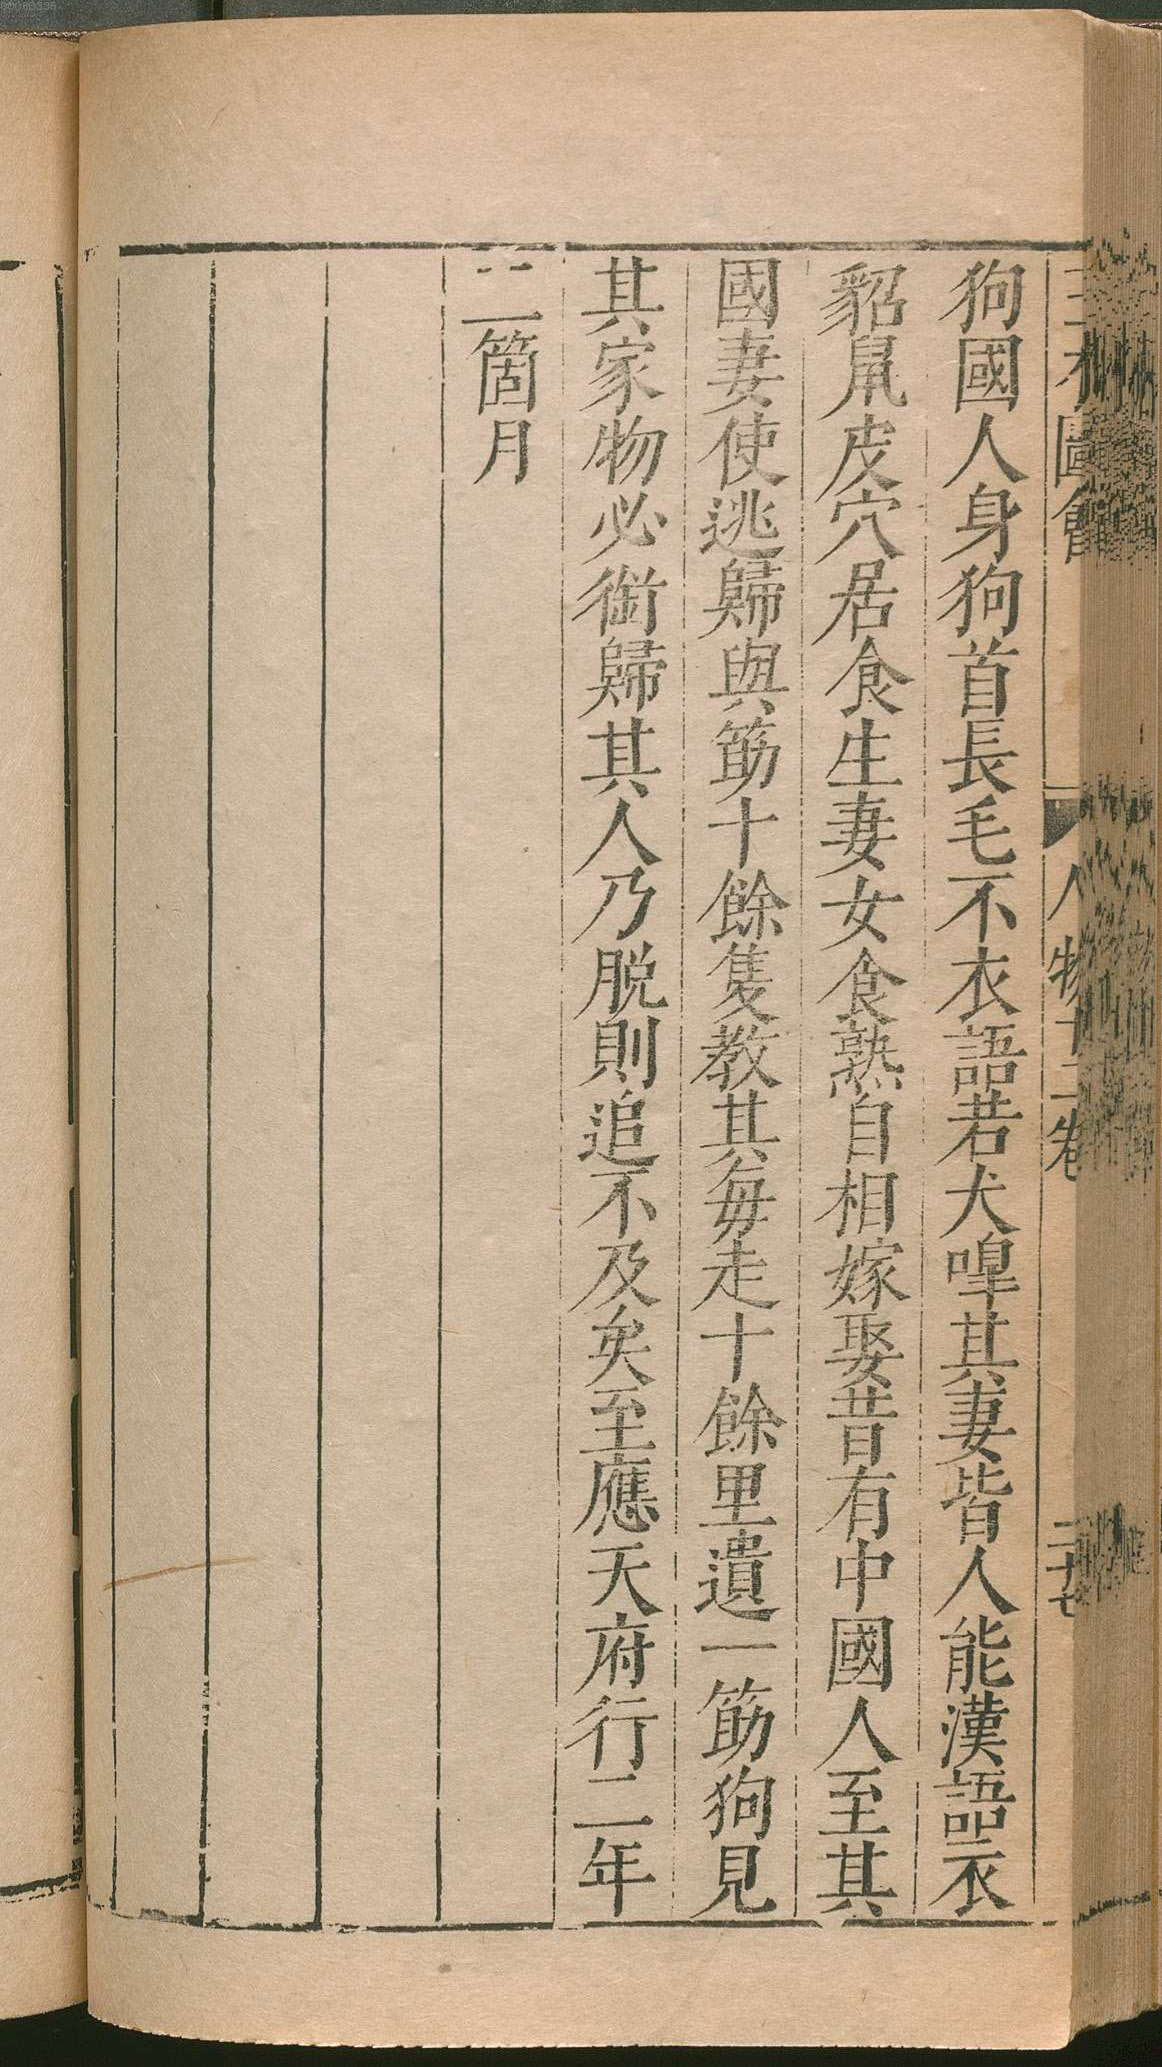 三才圖會
人物十二卷
二十七
狗國人身狗首長毛不衣語若犬嘷其妻皆人能漢語衣
貂鼠皮穴居食生妻女食熟自相嫁娶昔有中國人至其
國妻使逃歸與筯十餘隻教其毎走十餘里遺一筯狗見
其家物必銜歸其人乃脱則追不及矣至應天府行二年
二箇月